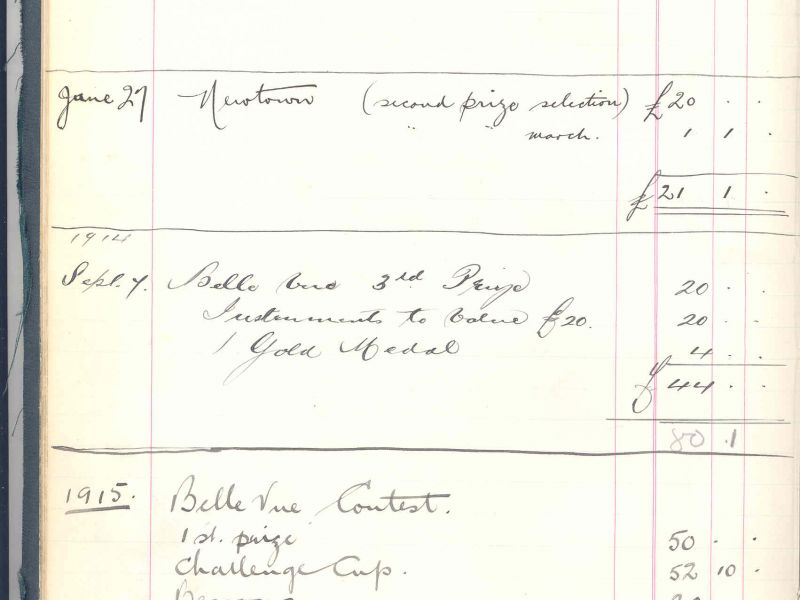 June 27 Newtown (second prize selection) £20 . .
" " march. 1 1 .
£21 1 .
1914
Sept. 7. Belle Vue 3rd Prize 20 . .
Instruments to Value £20. 20 . .
1 Gold Medal 4 . .
£44 . .
80 . 1
1915. Belle Vue Contest.
1st. prize 50 . .
Challenge Cup. 52 10 .